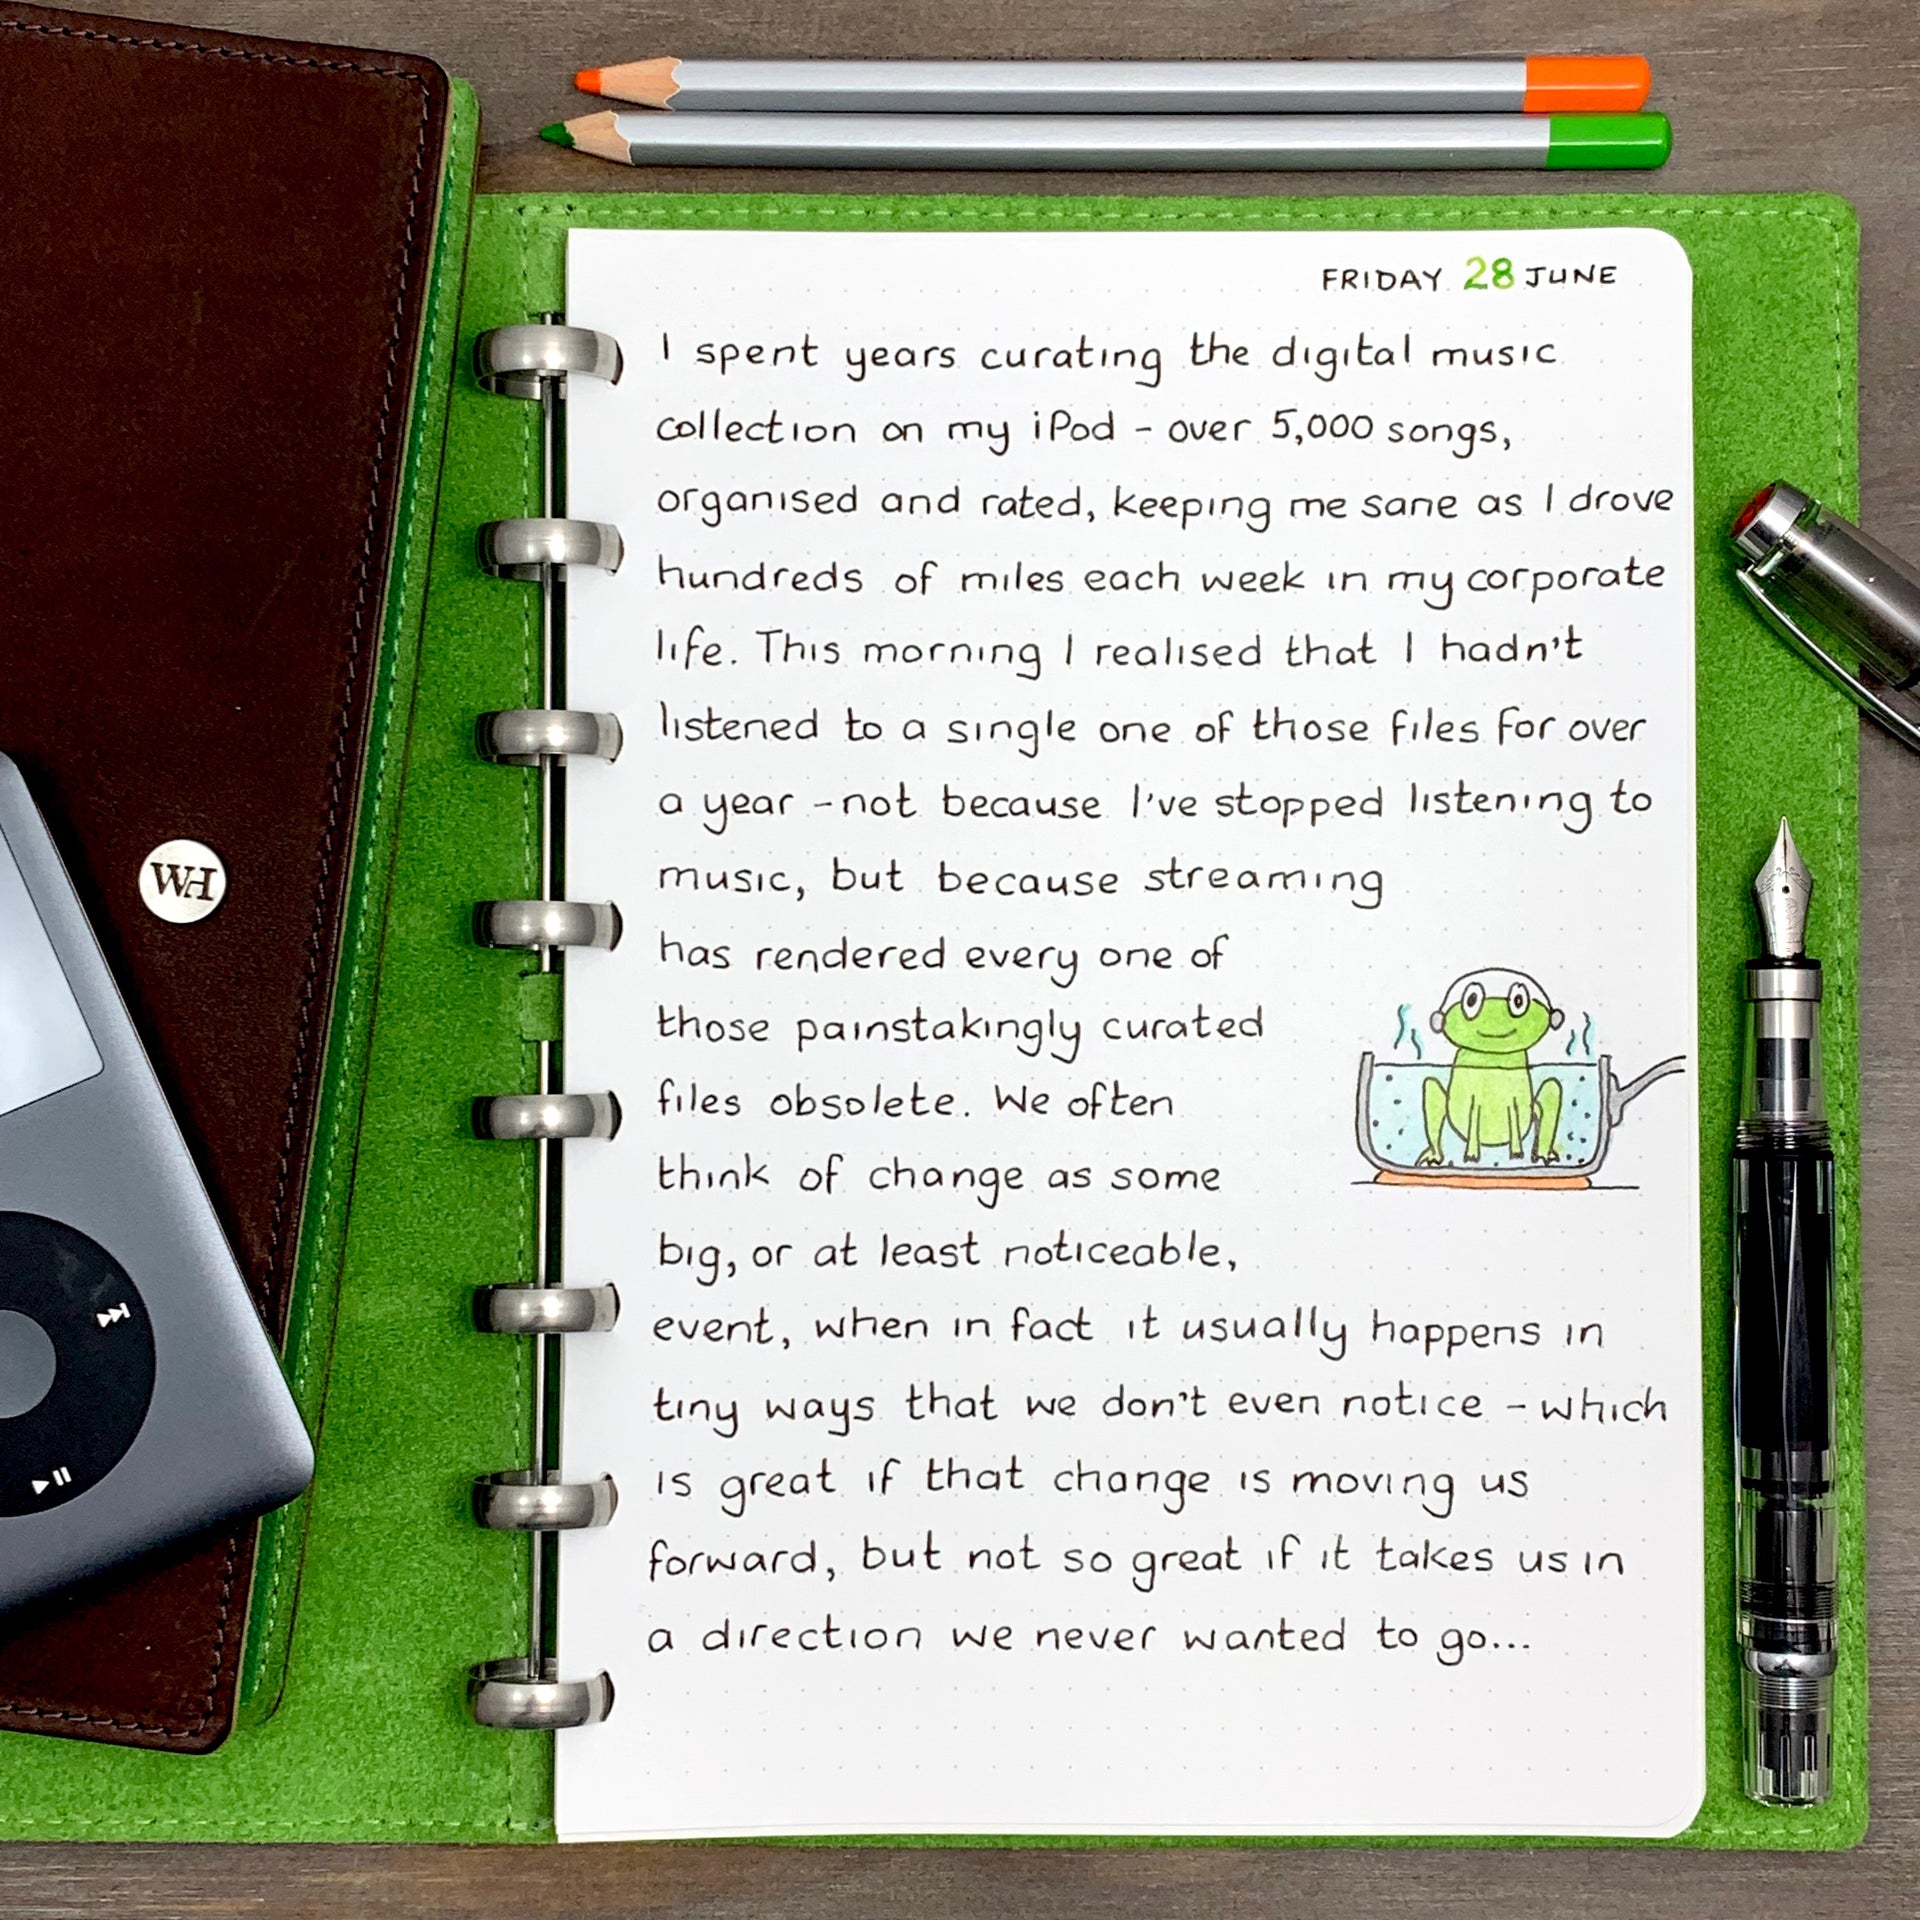 FRIDAY 28 JUNE
I spent years curating the digital music
collection on my iPod - over 5,000 songs,
organised and rated, keeping me sane as I drove
hundreds of miles each week in my corporate
life. This morning I realised that I hadn't
listened to a single one of those files for over
a year - not because I've stopped listening to
music, but because streaming
has rendered every one of
those painstakingly curated
files obsolete. We often
think of change as some
big, or at least noticeable,
event, when in fact it usually happens in
tiny ways that we don't even notice - which
is great if that change is moving us
forward, but not so great if it takes us in
a direction we never wanted to go...
WH